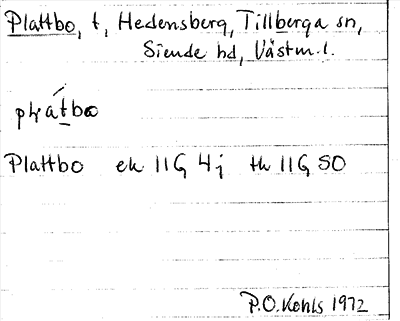 Plattbo, t, Hedensberg, Tillberga sn,
Siende hd, Västm. l.
Plattbo ek 11G 4j tk 11G SO
P.O. Kohls 1972